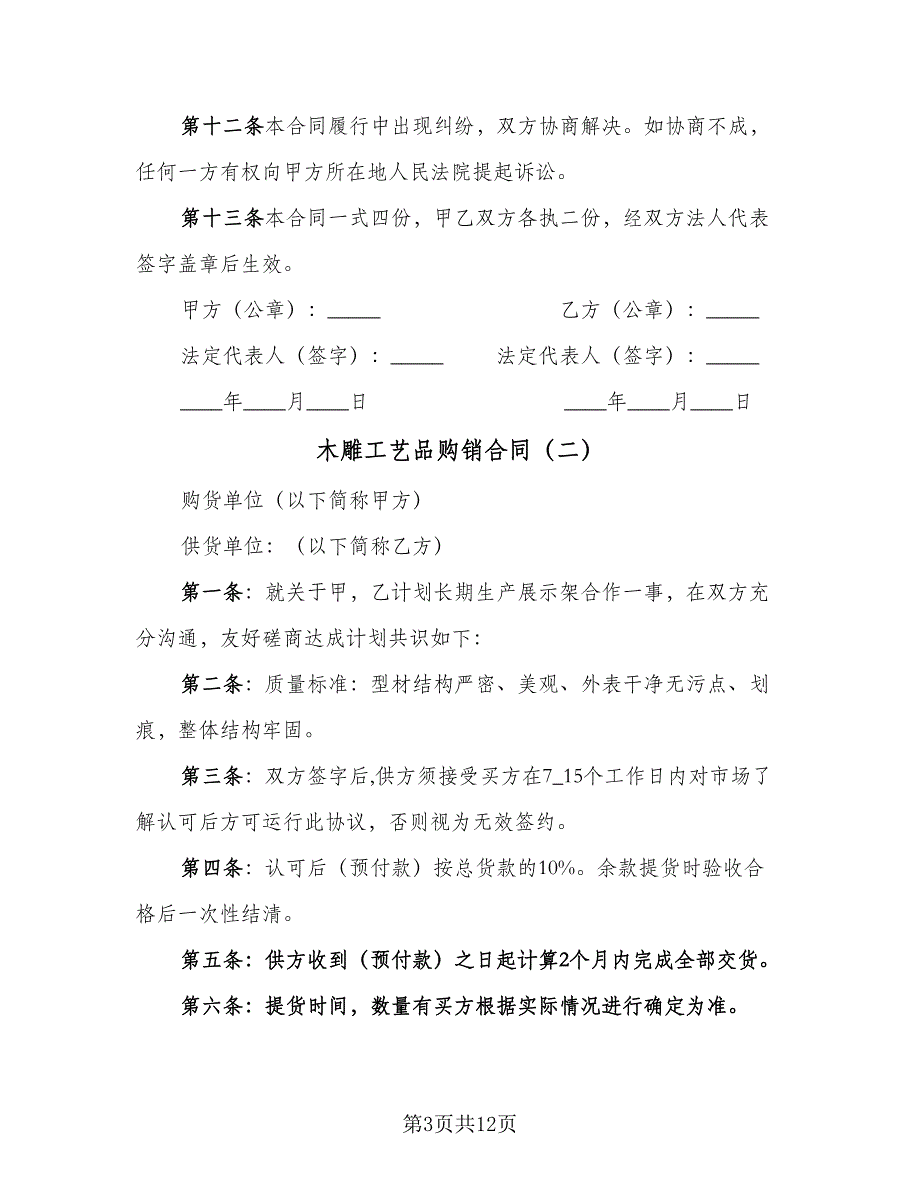 第十二条本合同履行中出现纠纷，双方协商解决。如协商不成，
任何一方有权向甲方所在地人民法院提起诉讼。
第十三条本合同一式四份，甲乙双方各执二份，经双方法人代表
签字盖章后生效。
甲方（公章）：_____ 乙方（公章）：_____
法定代表人（签字）：_____ 法定代表人（签字）：_____
____年____月____日 ____年____月____日
木雕工艺品购销合同（二）
购货单位（以下简称甲方）
供货单位：（以下简称乙方）
第一条：就关于甲，乙计划长期生产展示架合作一事，在双方充
分沟通，友好磋商达成计划共识如下：
第二条：质量标准：型材结构严密、美观、外表干净无污点、划
痕，整体结构牢固。
第三条：双方签字后,供方须接受买方在7_15个工作日内对市场了
解认可后方可运行此协议，否则视为无效签约。
第四条：认可后（预付款）按总货款的10%。余款提货时验收合
格后一次性结清。
第五条：供方收到（预付款）之日起计算2个月内完成全部交货。
第六条：提货时间，数量有买方根据实际情况进行确定为准。
第3页共12页